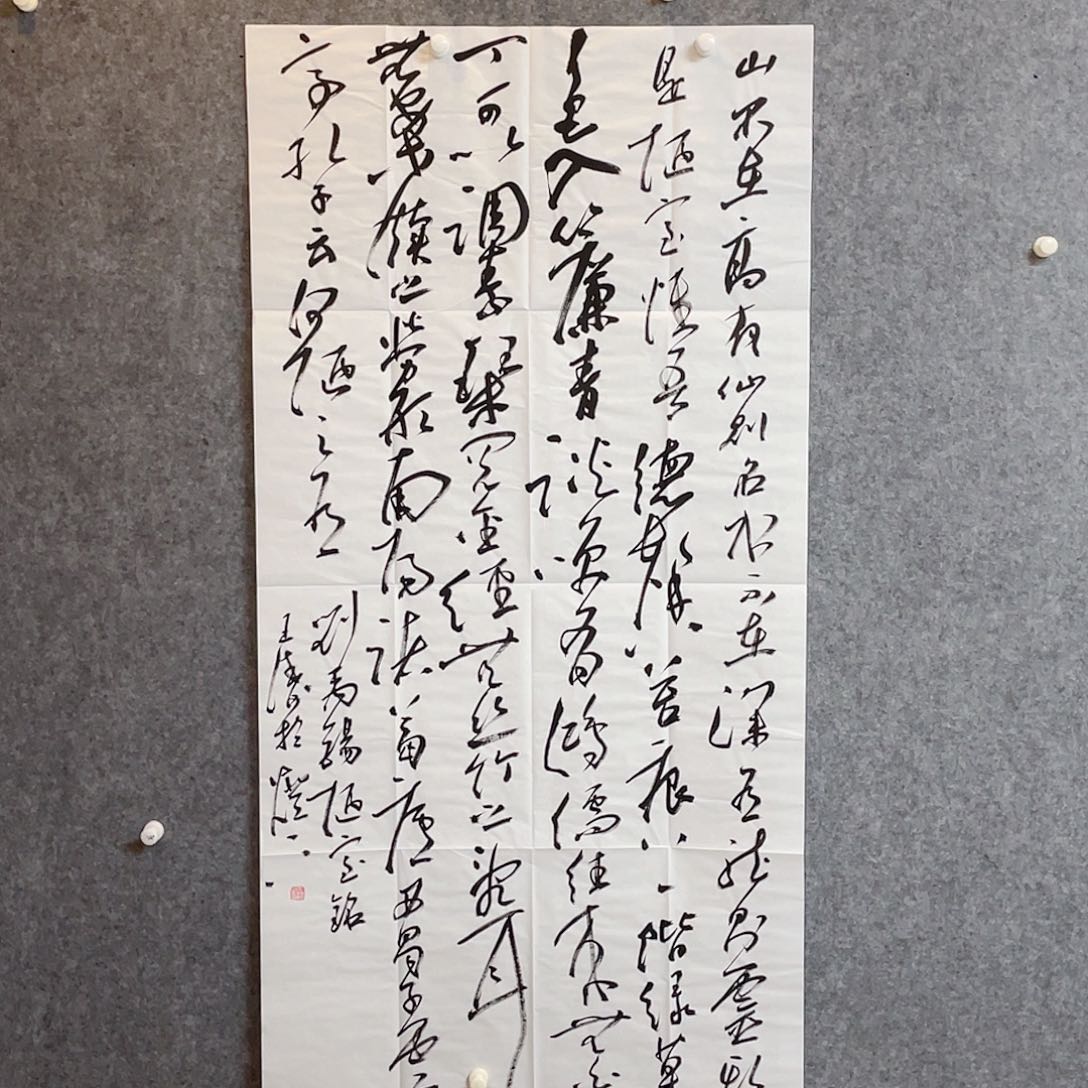 山不在高有仙則名水不在深有龍則靈斯
是陋室惟吾德馨苔痕上階綠草
色入簾青談笑有鴻儒往來無白
丁可以調素琴閱金經無絲竹之亂耳
無案牘之勞形南陽諸葛廬西蜀子雲
亭孔子云何陋之有
劉禹錫陋室銘
王 於